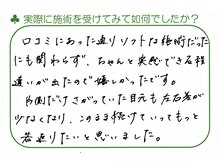 ♣実際に施術を受けてみて如何でしたか？
口コミにあった通りソフトな施術だった
にも関わらず、ちゃんと実感できる程
違いが出たので嬉しかったです。
片側だけさがっていた目元も左右差が
少なくなり、このまま続けていってもっと
若返りたいと思いました。